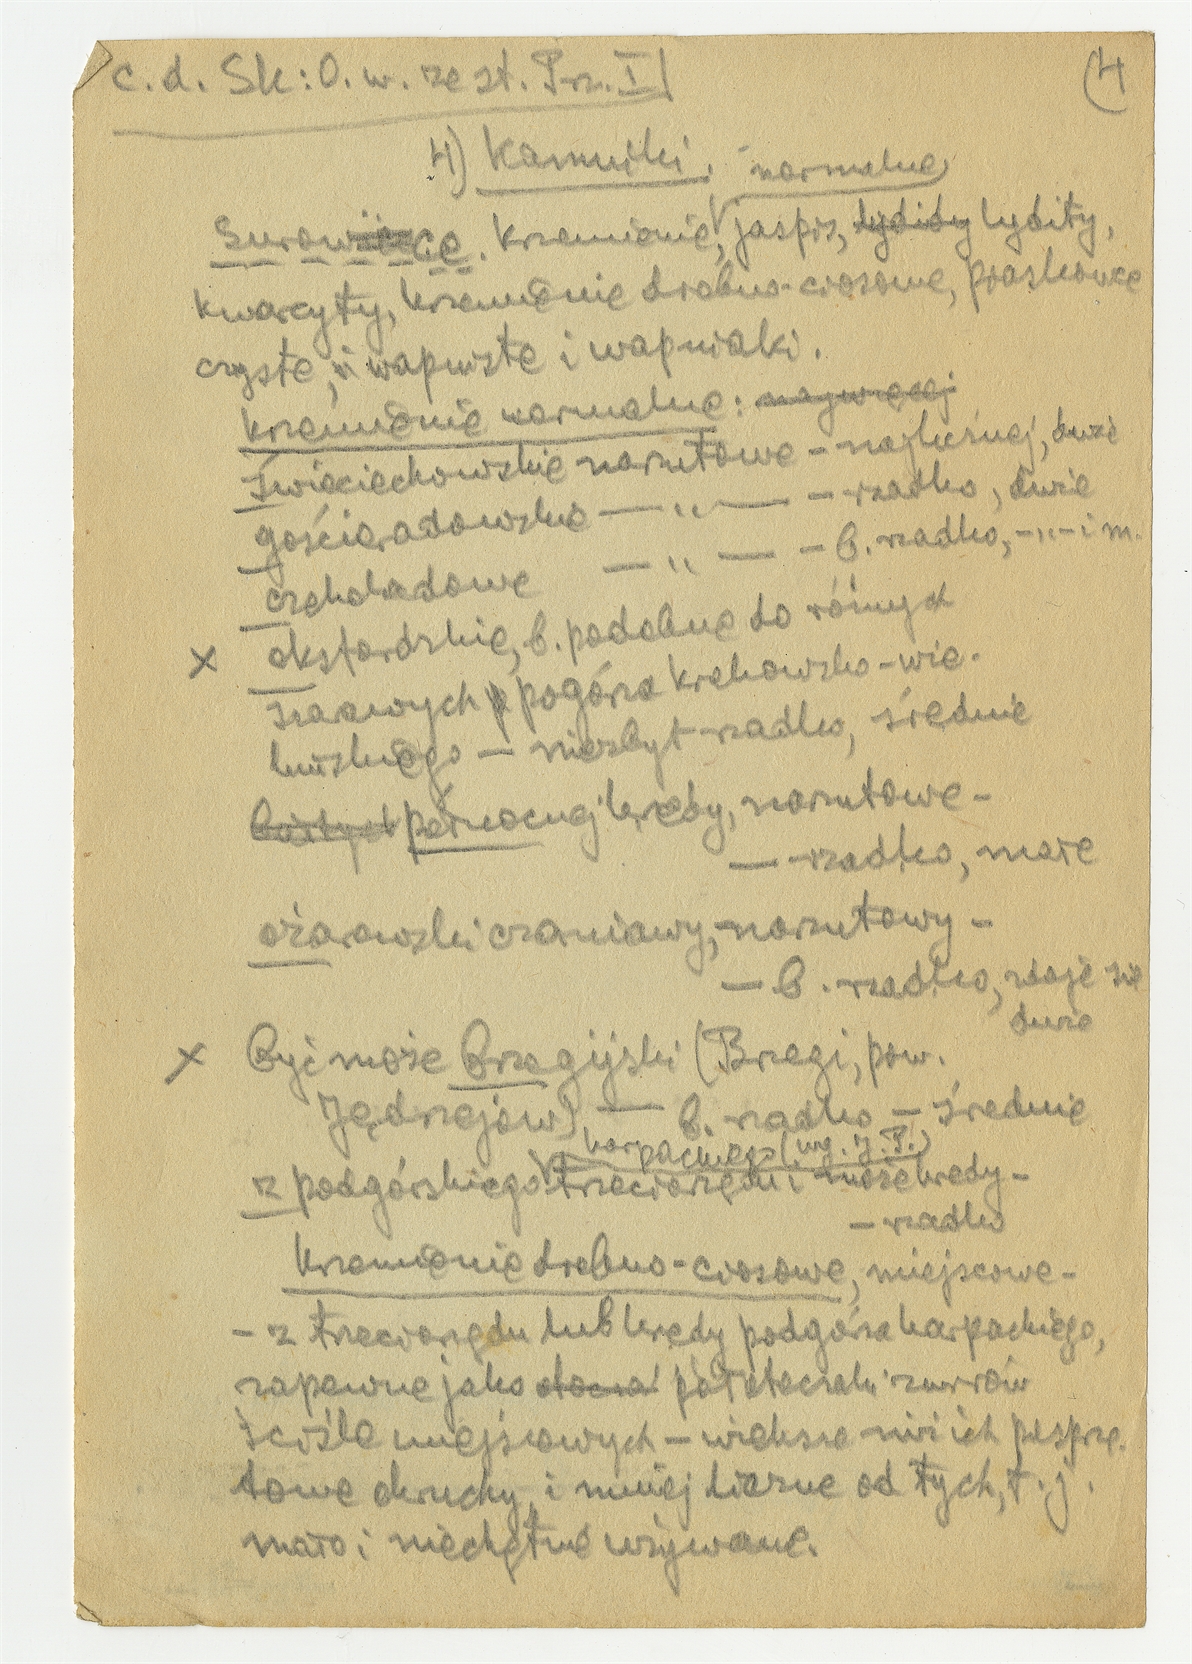 c. d. Sk: O. w. zest. Prz. I
(4
4) Kamyki.
Surowce. Krzemienie normalne, jaspis, lydidy lydity,
kwarcyty, krzemienie drobno-czosowe, piaskowce
czyste, i wapniste i wapniaki.
Krzemienie normalne: najwięcej
Świeciechowskie narzutowe – najliczniej, duże
gościeradowskie — „ — – rzadko, duże
czekoladowe — „ — – b. rzadko, -„- i m.
x oksfordzkie, b. podobne do różnych
szarawych pogórza krakowsko-wie-
luńskiego – niezbyt rzadko, średnie
północnej kredy, narzutowe –
– rzadko, małe
ożarowski czarniawy, narzutowy –
– b. rzadko, zdaje się
duże
x Być może brzegijski (Brzegi, pow.
Jędrzejów) — b. rzadko – średnie
karpackiego (wg. J. P.)
z podgórskiego trzeciorzędu i może kredy –
– rzadko
Krzemienie drobno-czosowe, miejscowe –
– z trzeciorzędu lub kredy podgórza karpackiego,
zapewne jako otocza żwirów
ściśle miejscowych – większe niż ich
towe okruchy, i mniej liczne od tych, t. j.
mało i niechętnie używane.